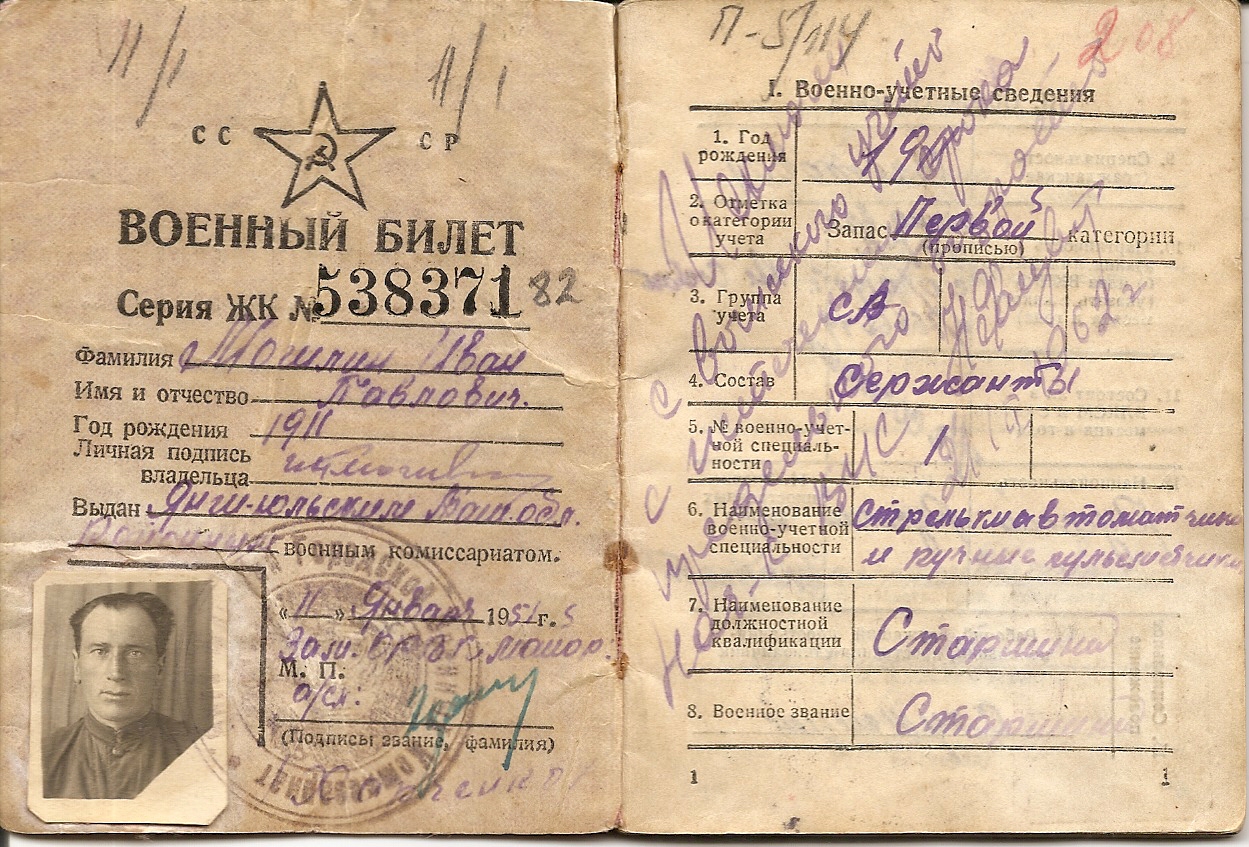 11/1
11/1
СС СР
ВОЕННЫЙ БИЛЕТ
Серия ЖК № 538371 82
Фамилия Мошлин Иван
Имя и отчество Павлович.
Год рождения 1911
Личная подпись
владельца
Выдан Янги-юльским Таш.обл.
военным комиссариатом.
„11“ Января 1951 г.
Зам.
М. П.
а/сл:
(Подпись, звание, фамилия)
П-5/114
208
I. Военно-учетные сведения
1. Год
рождения 1911
2. Отметка
о категории
учета
Запас Первой категории
(прописью)
3. Группа
учета СА
4. Состав Сержанты
5. № военно-учет-
ной специаль-
ности 1
6. Наименование
военно-учетной
специальности
Стрелки автоматчики
и ручные пулеметчики
7. Наименование
должностной
квалификации Старшина
8. Военное звание Старшина
с воинского учета
1 1